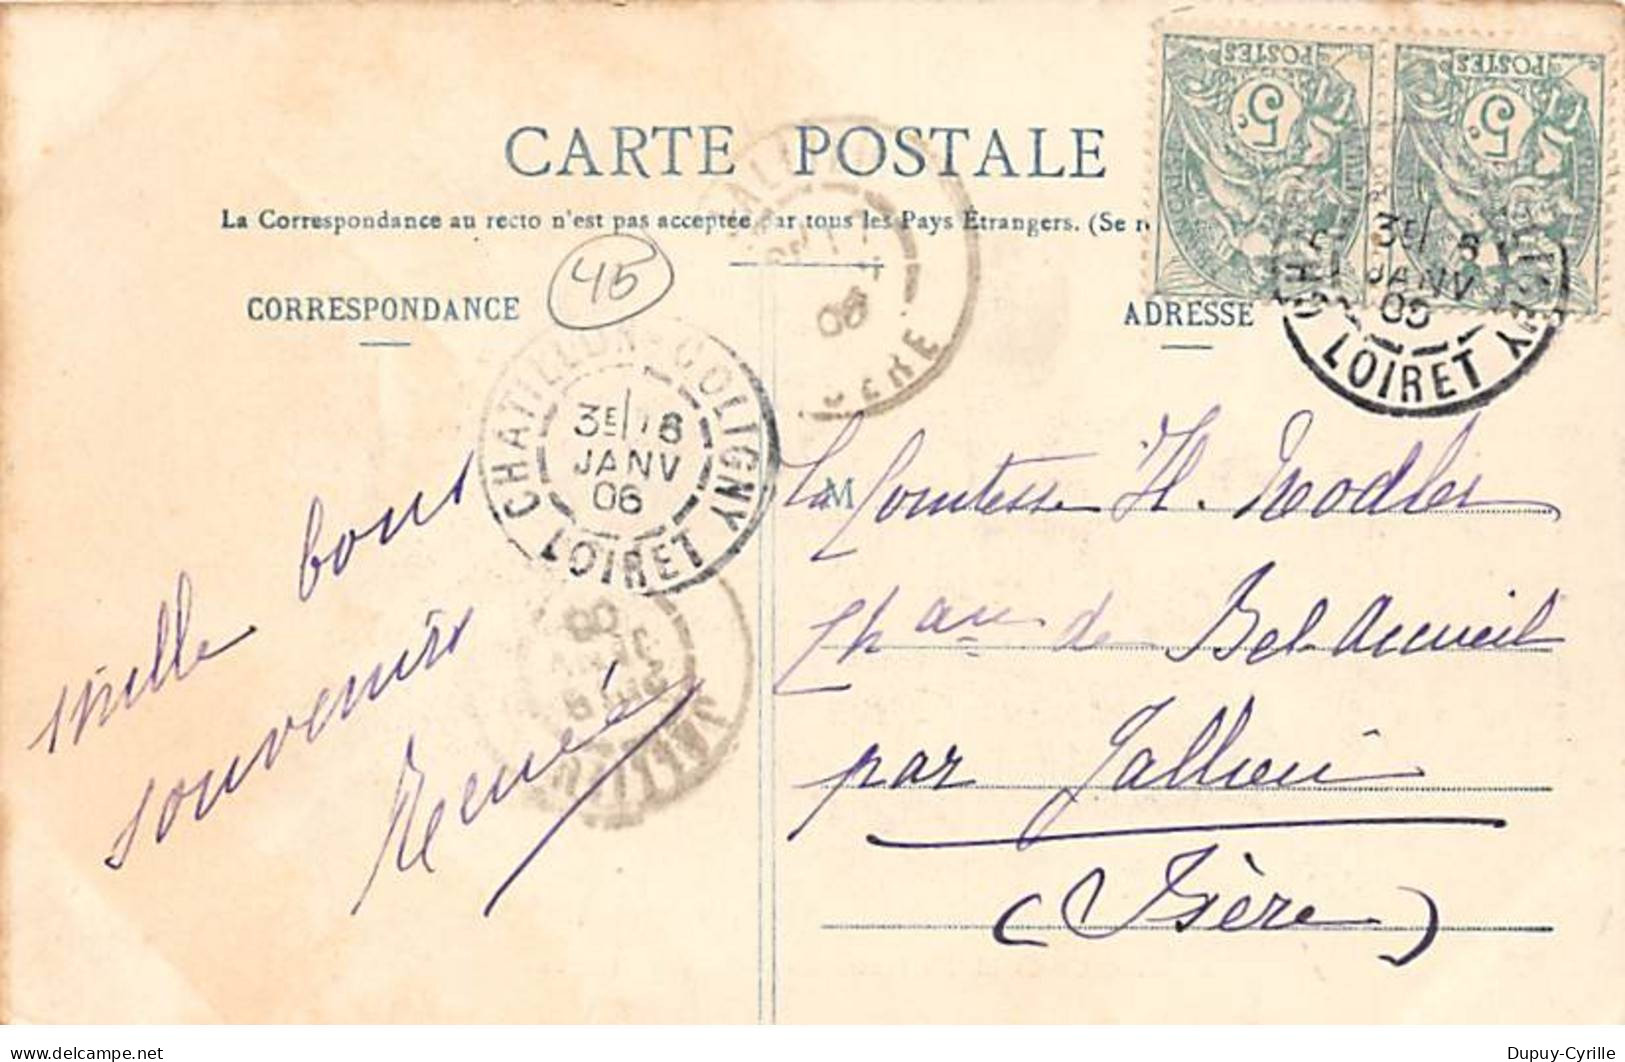 CARTE POSTALE
La Correspondance au recto n'est pas acceptée par tous les Pays Étrangers. (Se r
CORRESPONDANCE
45
ADRESSE
POSTES
5c
POSTES
5c
3E/
JANV
LOIRET
CHATILLON-COLIGNY
3E/
JANV
06
LOIRET
JALLIEU
06
ISERE
JALLIEU
mille bons
souvenirs
Renée
M
La Comtesse H.
Chau de Bel-Accueil
par Jallieu
(Isère)
delcampe.net
Dupuy-Cyrille